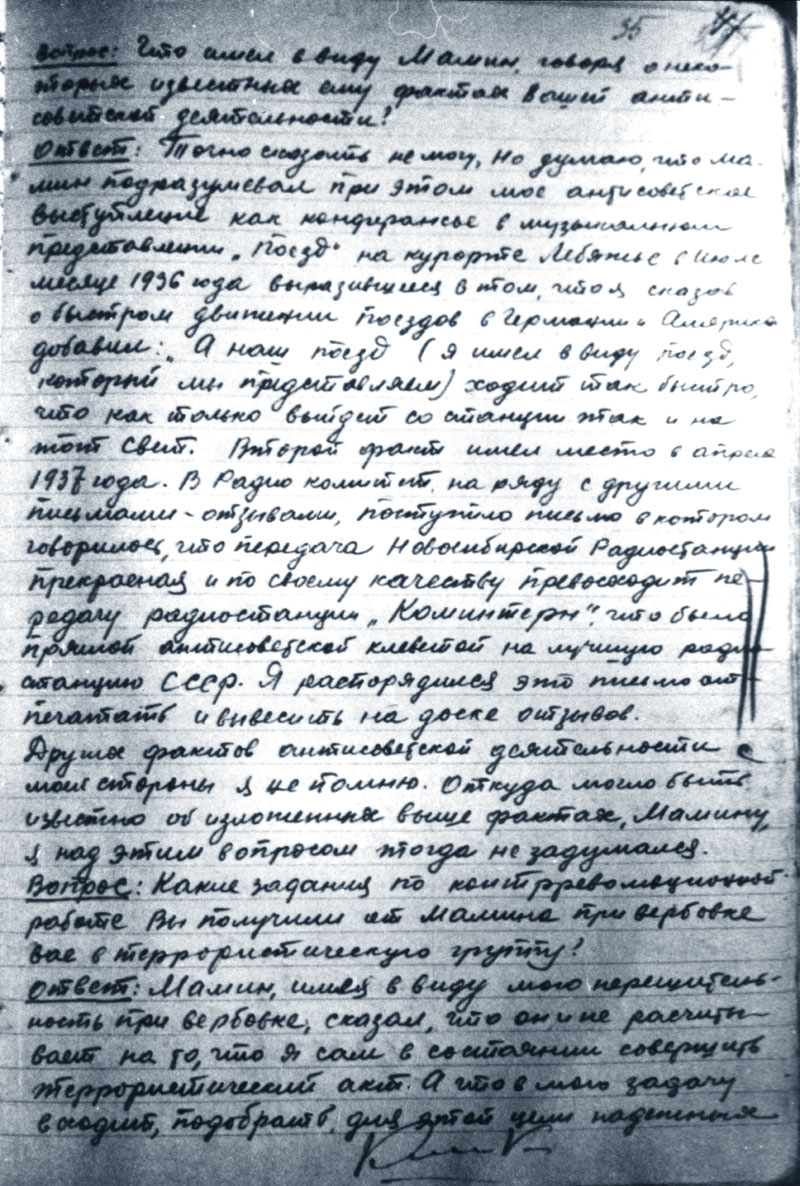 35
Вопрос: Что имел в виду Мамин, говоря о неко-
торых известных ему фактах вашей анти-
советской деятельности?
Ответ: Точно сказать не могу, но думаю, что Ма-
мин подразумевал при этом мое антисоветское
выступление как конферансье в музыкальном
представлении „Поезд" на курорте Лебяжье в июле
месяце 1936 года выразившееся в том, что я сказав
о быстром движении поездов в Германии и Америке
добавил: „А наш поезд (я имел в виду поезд,
который мы представляем) ходит так быстро,
что как только выйдет со станции так и на
тот свет. Второй факт имел место в апреле
1937 года. В Радиокомитет, на ряду с другими
письмами-отзывами, поступило письмо в котором
говорилось, что передача Новосибирской Радиостанции
прекрасная и по своему качеству превосходит пе-
редачу радиостанции „Коминтерн", что было
прямой антисоветской клеветой на лучшую радио-
станцию СССР. Я распорядился это письмо от-
печатать и вывесить на доске отзывов.
Других фактов антисоветской деятельности с
моей стороны я не помню. Откуда могло быть
известно об изложенных выше фактах, Мамину,
я над этим вопросом тогда не задумался.
Вопрос: Какие задания по контрреволюционной
работе Вы получили от Мамина при вербовке
вас в террористическую группу?
Ответ: Мамин, имея в виду мою нерешитель-
ность при вербовке, сказал, что он и не расчиты-
вает на то, что я сам в состоянии совершить
террористический акт. А что в мою задачу
входит, подобрать для этой цели надежных